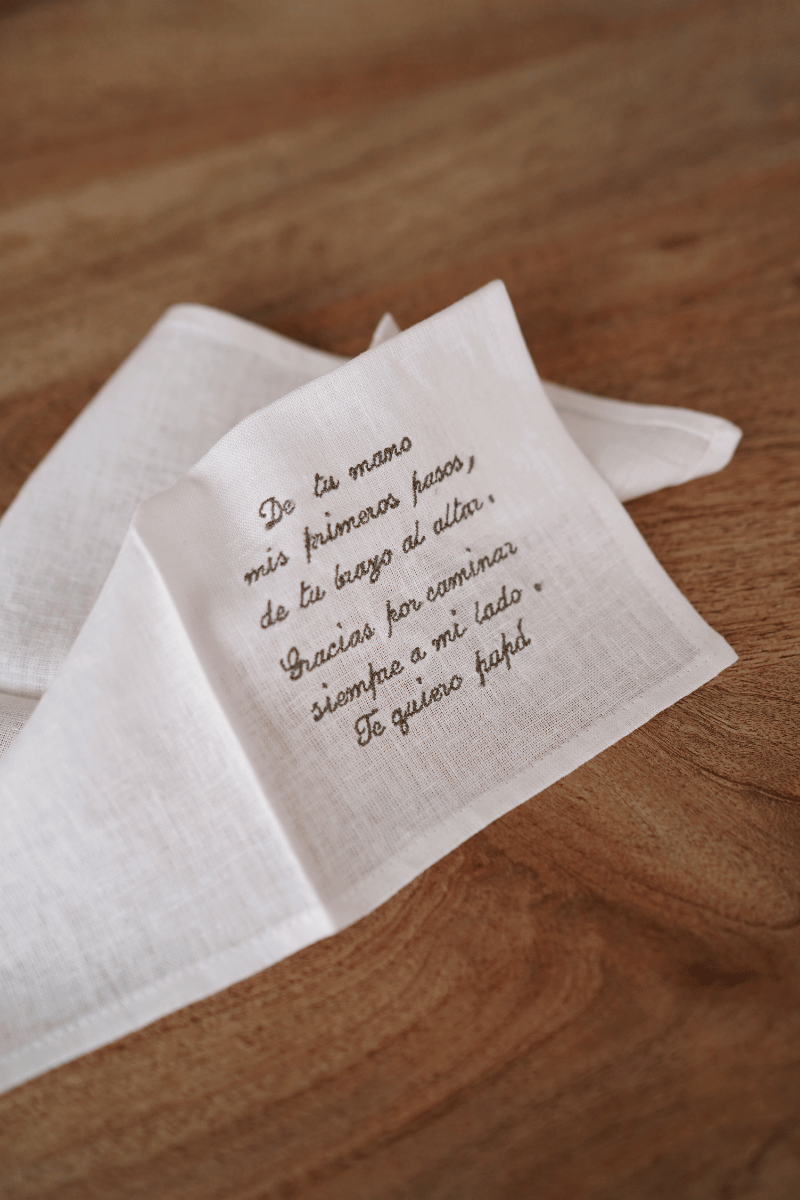 De tu mano
mis primeros pasos,
de tu brazo al altar.
Gracias por caminar
siempre a mi lado.
Te quiero papá